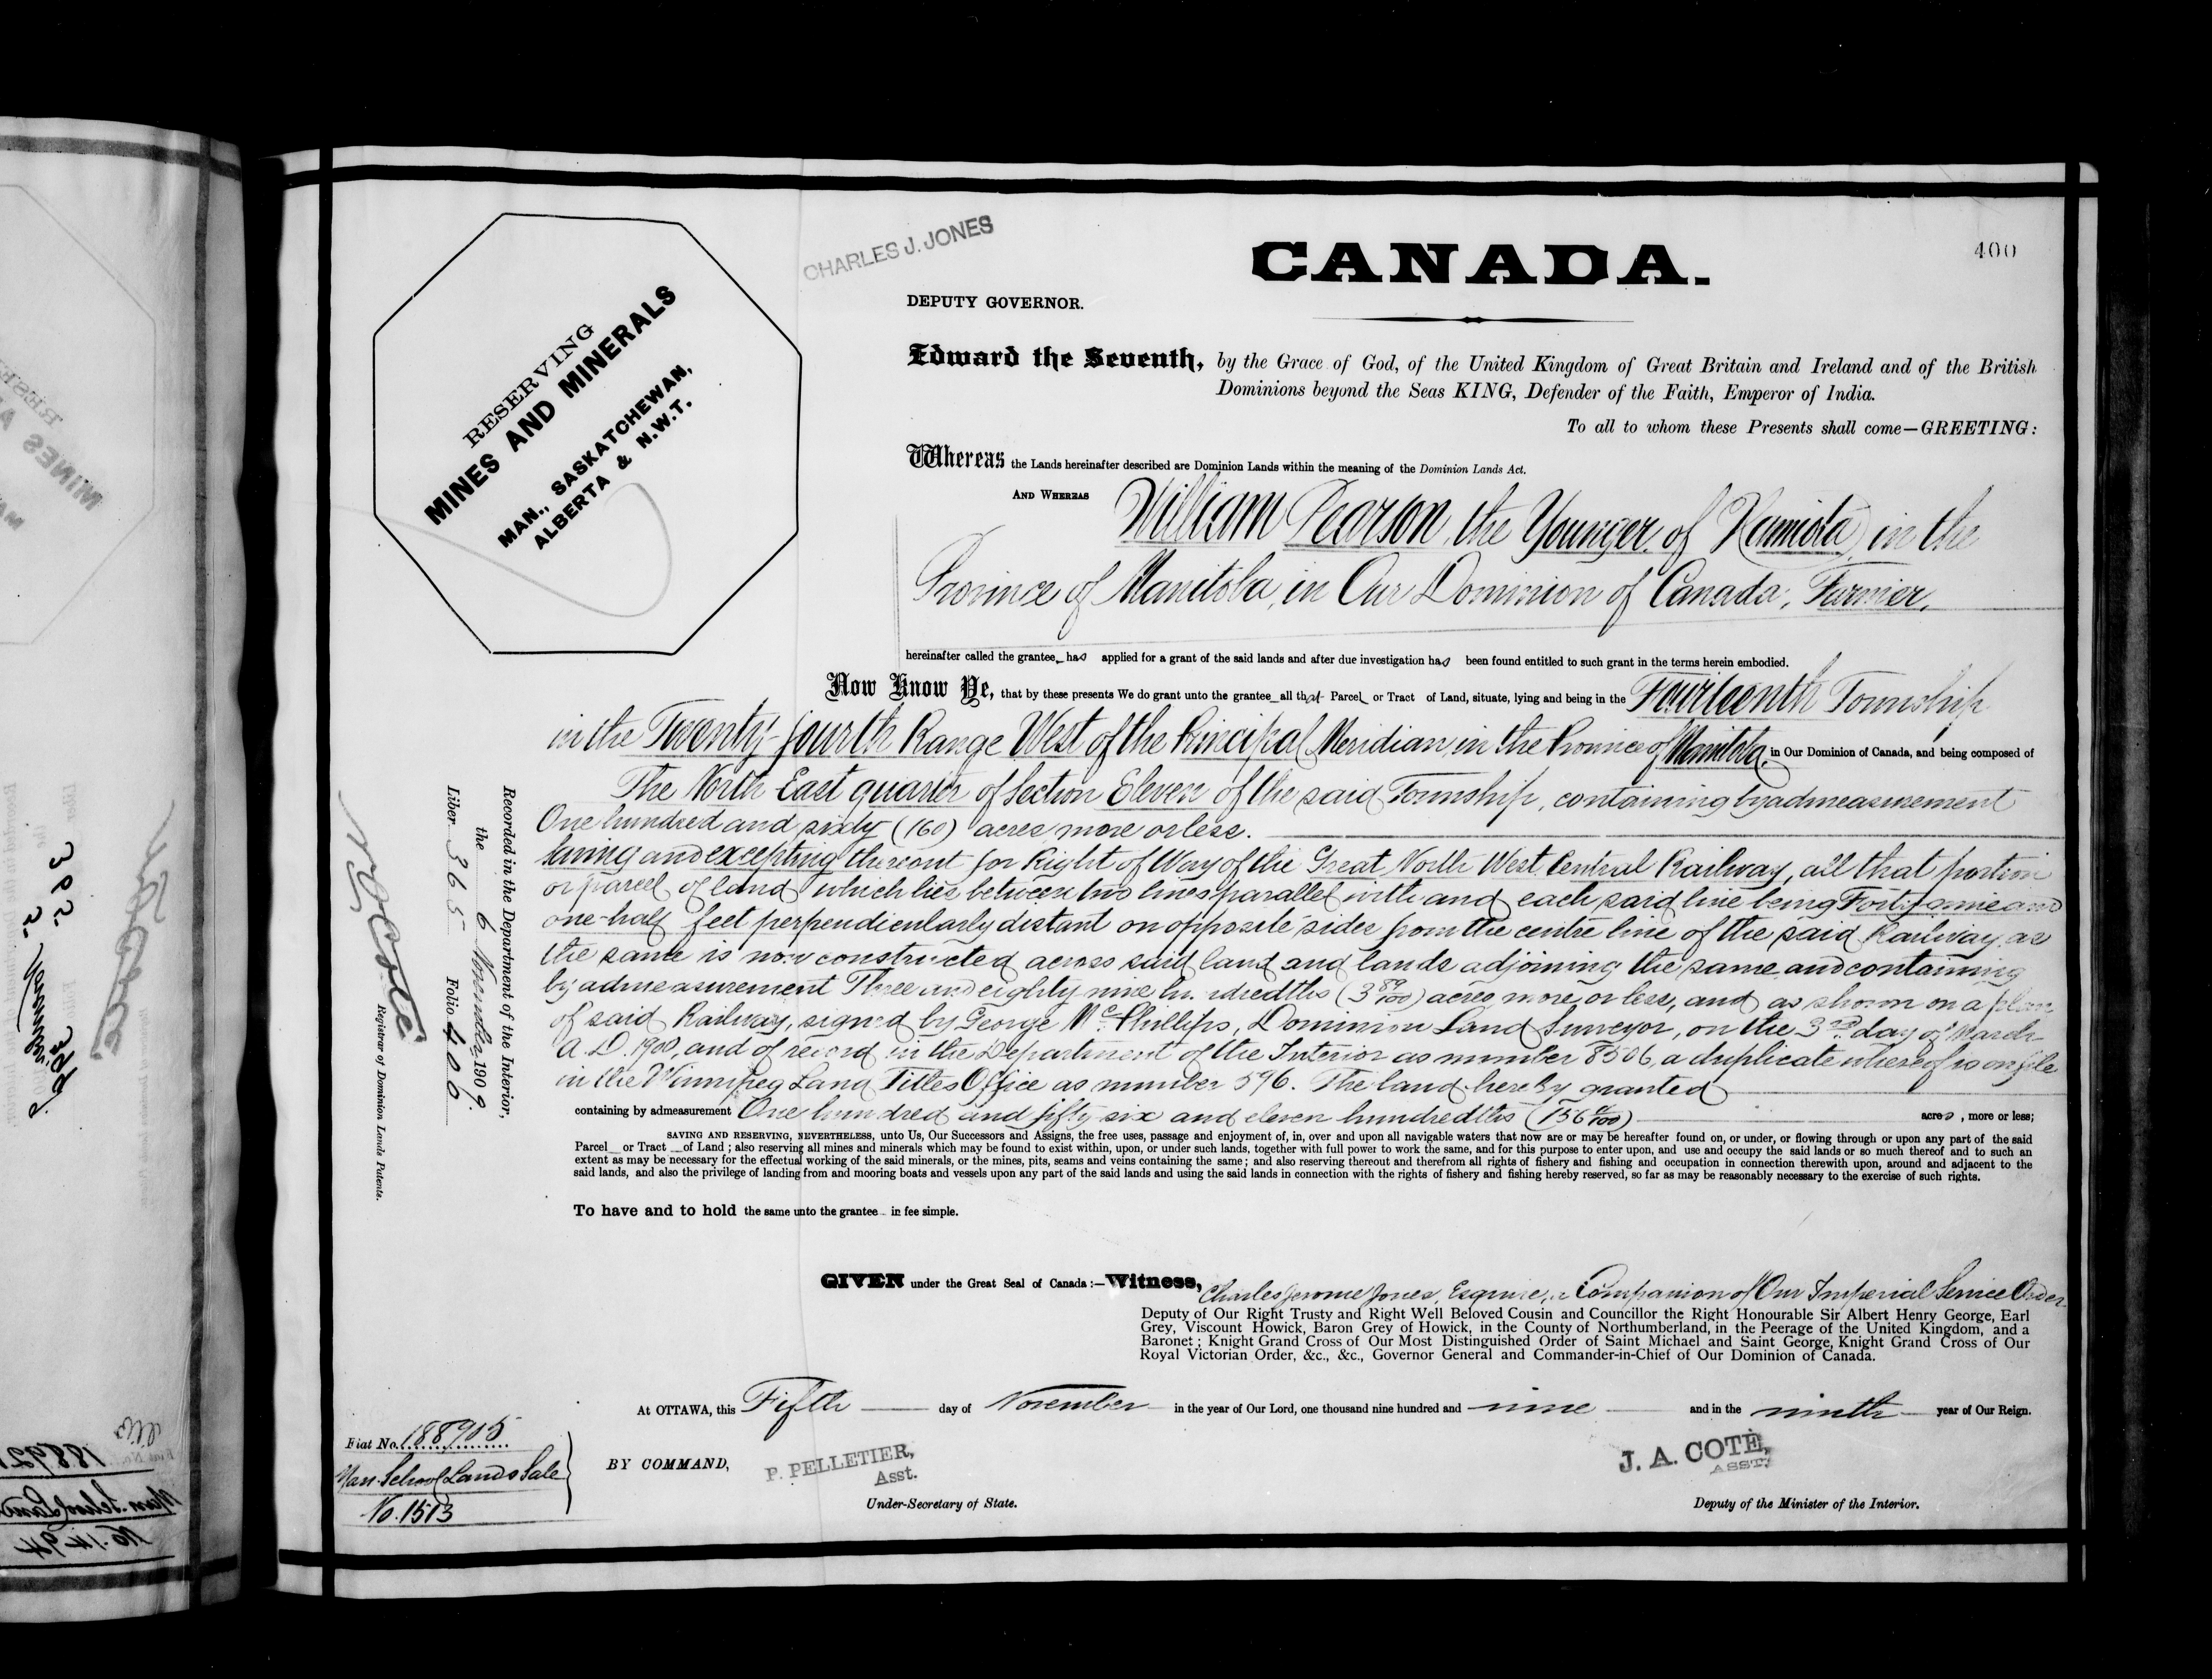 CHARLES J. JONES
CANADA.
400
DEPUTY GOVERNOR.
RESERVING
MINES AND MINERALS
MAN., SASKATCHEWAN,
ALBERTA & N.W.T.
Edward the Seventh, by the Grace of God, of the United Kingdom of Great Britain and Ireland and of the British
Dominions beyond the Seas KING, Defender of the Faith, Emperor of India.
To all to whom these Presents shall come—GREETING:
Whereas the Lands hereinafter described are Dominion Lands within the meaning of the Dominion Lands Act.
AND WHEREAS William Pearson, the Younger, of Hamiota, in the
Province of Manitoba, in Our Dominion of Canada, Farmer,
hereinafter called the grantee has applied for a grant of the said lands and after due investigation has been found entitled to such grant in the terms herein embodied.
Now Know Ye, that by these presents We do grant unto the grantee all that Parcel or Tract of Land, situate, lying and being in the Fourteenth Township
in the Twenty-fourth Range West of the Principal Meridian, in the Province of Manitoba, in Our Dominion of Canada, and being composed of
The North East quarter of Section Eleven of the said Township, containing by admeasurement
One hundred and sixty (160) acres more or less.
Saving and excepting thereout for Right of Way of the Great North West Central Railway, all that portion
or parcel of land which lies between two lines parallel with and each said line being Forty-nine and
one-half feet perpendicularly distant on opposite sides from the centre line of the said Railway, as
the same is now constructed across said land and lands adjoining the same and containing
by admeasurement Three and eighty nine hundredths (3 89/100) acres, more or less, and as shown on a plan
of said Railway, signed by George Mc.Phillips, Dominion Land Surveyor, on the 3rd day of March
A.D. 1900, and of record in the Department of the Interior as number 8506, a duplicate whereof is on file
in the Winnipeg Land Titles Office as number 596. The land hereby granted
containing by admeasurement One hundred and fifty six and eleven hundredths (156 11/100) acres, more or less;
SAVING AND RESERVING, NEVERTHELESS, unto Us, Our Successors and Assigns, the free uses, passage and enjoyment of, in, over and upon all navigable waters that now are or may be hereafter found on, or under, or flowing through or upon any part of the said
Parcel or Tract of Land; also reserving all mines and minerals which may be found to exist within, upon, or under such lands, together with full power to work the same, and for this purpose to enter upon, and use and occupy the said lands or so much thereof and to such an
extent as may be necessary for the effectual working of the said minerals, or the mines, pits, seams and veins containing the same; and also reserving thereout and therefrom all rights of fishery and fishing and occupation in connection therewith upon, around and adjacent to the
said lands, and also the privilege of landing from and mooring boats and vessels upon any part of the said lands and using the said lands in connection with the rights of fishery and fishing hereby reserved, so far as may be reasonably necessary to the exercise of such rights.
To have and to hold the same unto the grantee in fee simple.
GIVEN under the Great Seal of Canada:—Witness, Charles Jerome Jones, Esquire, a Companion of Our Imperial Service Order
Deputy of Our Right Trusty and Right Well Beloved Cousin and Councillor the Right Honourable Sir Albert Henry George, Earl
Grey, Viscount Howick, Baron Grey of Howick, in the County of Northumberland, in the Peerage of the United Kingdom, and a
Baronet; Knight Grand Cross of Our Most Distinguished Order of Saint Michael and Saint George, Knight Grand Cross of Our
Royal Victorian Order, &c., &c., Governor General and Commander-in-Chief of Our Dominion of Canada.
At OTTAWA, this Fifth day of November in the year of Our Lord, one thousand nine hundred and nine and in the ninth year of Our Reign.
BY COMMAND,
P. PELLETIER,
Asst.
Under-Secretary of State.
J. A. COTÉ,
ASST.
Deputy of the Minister of the Interior.
Recorded in the Department of the Interior,
the 6 November 1909.
Liber 365 Folio 400
N. O. Coté
Registrar of Dominion Lands Patents.
Fiat No. 188905
Man. School Lands Sale
No. 1513